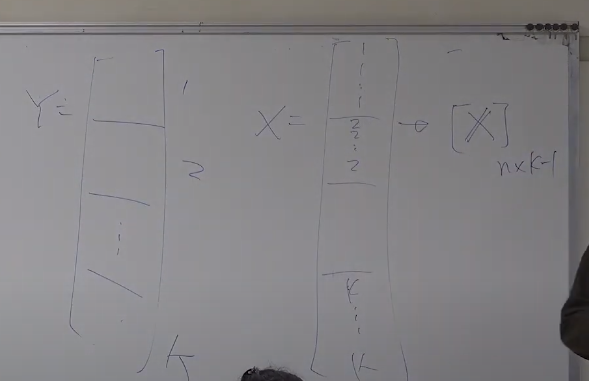 Y = 1
2
⋮
K
X = 1
1
⋮
1
2
2
⋮
2
K
⋮
K
→ [X] n×k-1